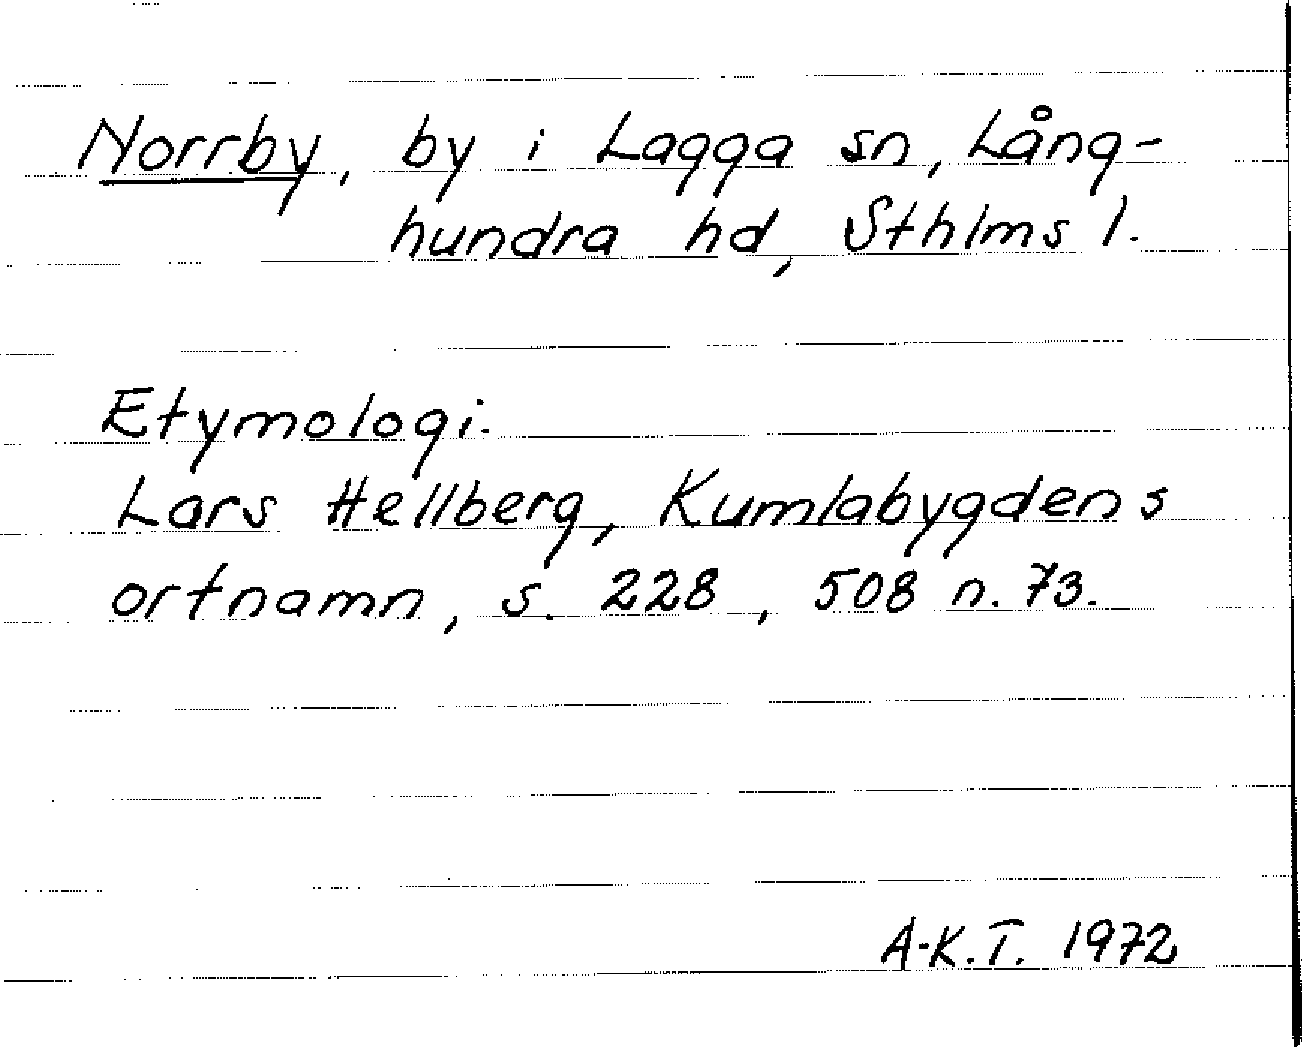 Norrby, by i Lagga sn, Lång-
hundra hd, Sthlms l.
Etymologi.
Lars Hellberg, Kumlabygdens
ortnamn, s. 228, 508 n. 73.
A-K.T. 1972